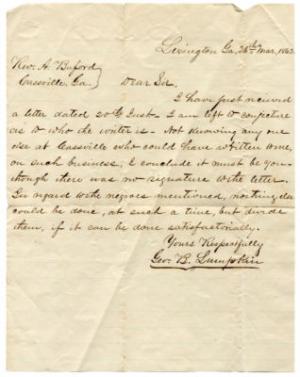 Lexington Ga, 26th Mar, 1862
Rev. A. Buford
Cassville, Ga
Dear Sir,
I have just received
a letter dated 20th Inst. I am left to conjecture
as to who the writer is. Not knowing any one
else at Cassville who could have written me,
on such business, I conclude it must be you
though there was no signature to the letter.
In regard to the negroes mentioned, nothing else
could be done, at such a time, but divide
them, if it can be done satisfactorily.
Yours Respectfully
Geo. B. Lumpkin